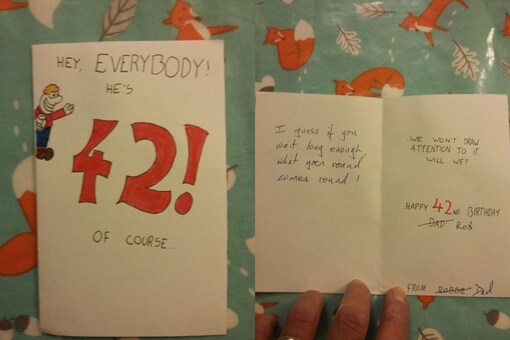 HEY, EVERYBODY!
HE'S
42!
OF COURSE...
I guess if you
wait long enough
what goes round
comes round!
WE WON'T DRAW
ATTENTION TO IT
WILL WE?
HAPPY 42ND BIRTHDAY
DAD! Rob
FROM Dad